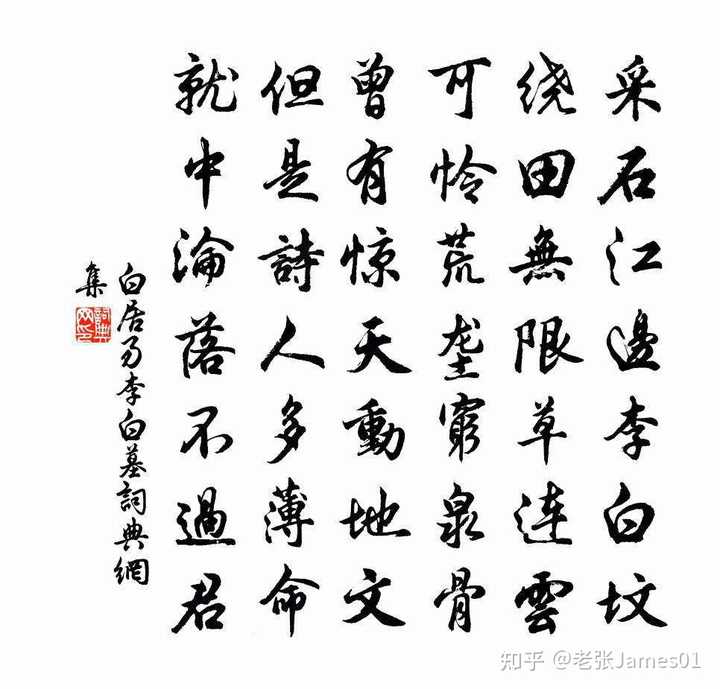 采石江邊李白坟
绕田無限草連雲
可怜荒垄窮泉骨
曾有惊天動地文
但是詩人多薄命
就中淪落不過君
白居易李白墓詞典網
集
知乎 @老张James01